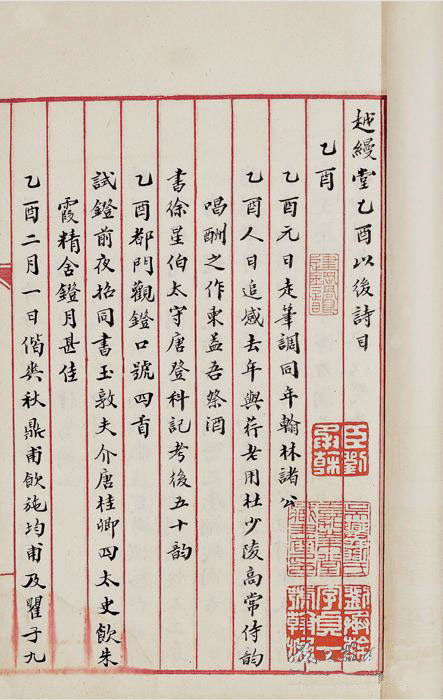 越縵堂乙酉以後詩目
乙酉
乙酉元日走筆調同年翰林諸公
乙酉人日追感去年與荇老用杜少陵高常侍韵
唱酬之作柬益吾祭酒
書徐星伯太守唐登科記考後五十韵
乙酉都門觀鐙口號四首
試鐙前夜招同書玉敦夫介唐桂卿四太史飲朱
霞精舍鐙月甚佳
乙酉二月一日偕爽秋鼎甫飲施均甫及瞿子九
臣劉
承榦
吳興劉氏
嘉業堂
藏書印
劉承榦
字貞一
號翰怡